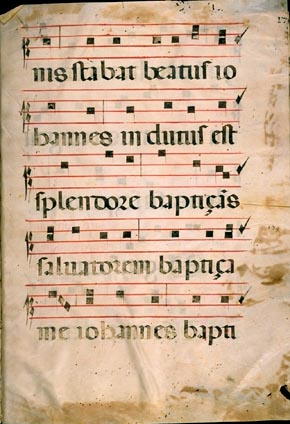 nis stabat beatus io
hannes indutus est
splendore baptiçãs
saluatorem baptiça
me iohannes bapti